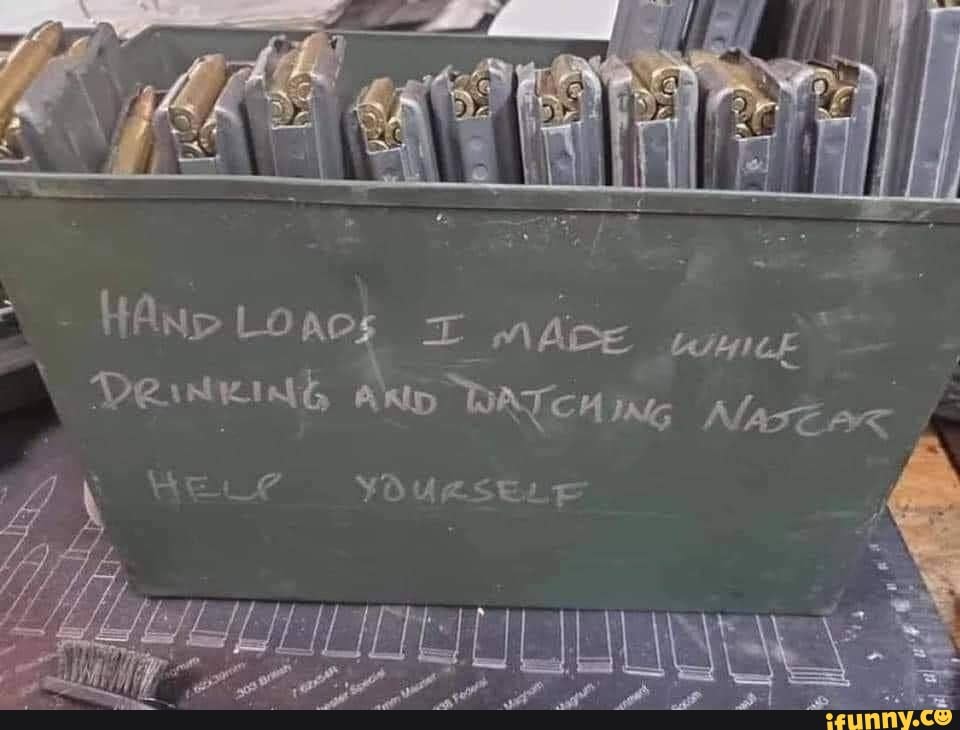 HAND LOADS I MADE WHILE
DRINKING AND WATCHING NASCAR
HELP YOURSELF
.303 British
7.62x54R
Special
mm Mauser
Federal
Magnum
Magnum
ifunny.co